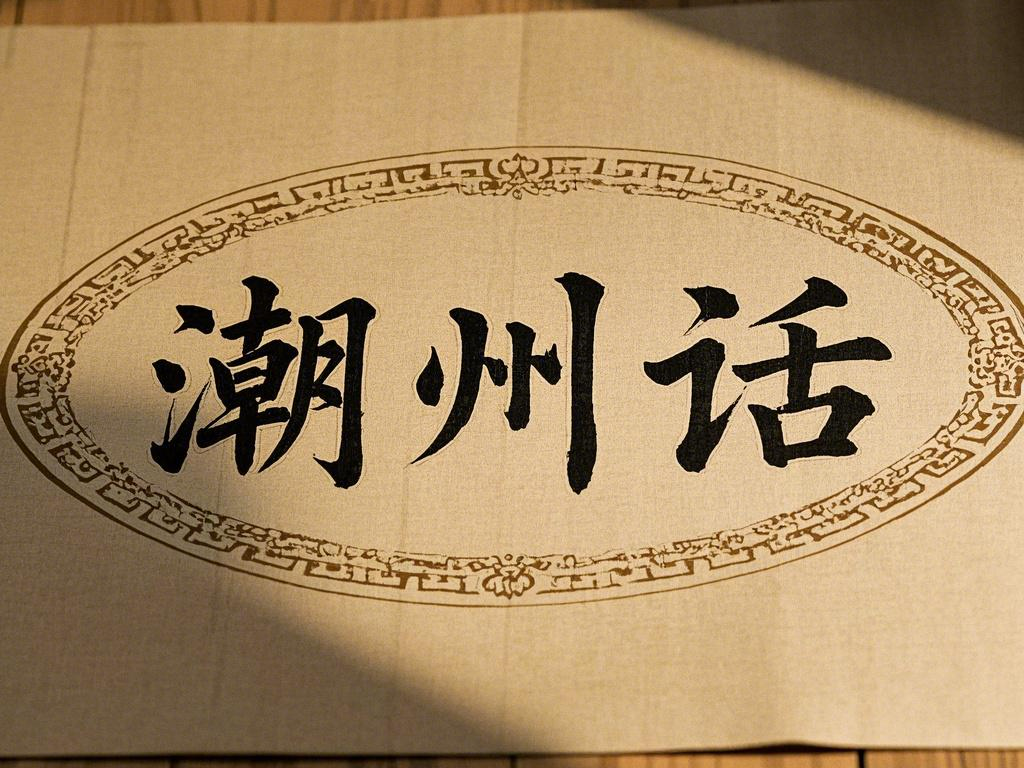 潮州话